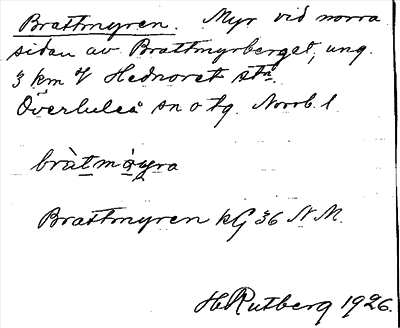 Brattmyren. Myr vid norra
sidan av Brattmyrberget, ung.
3 km V Hednoret stn.
Överluleå sn o tg. Norrb. l.
bràtmỳra
Brattmyren kG 36 N.M.
H Rutberg 1926.